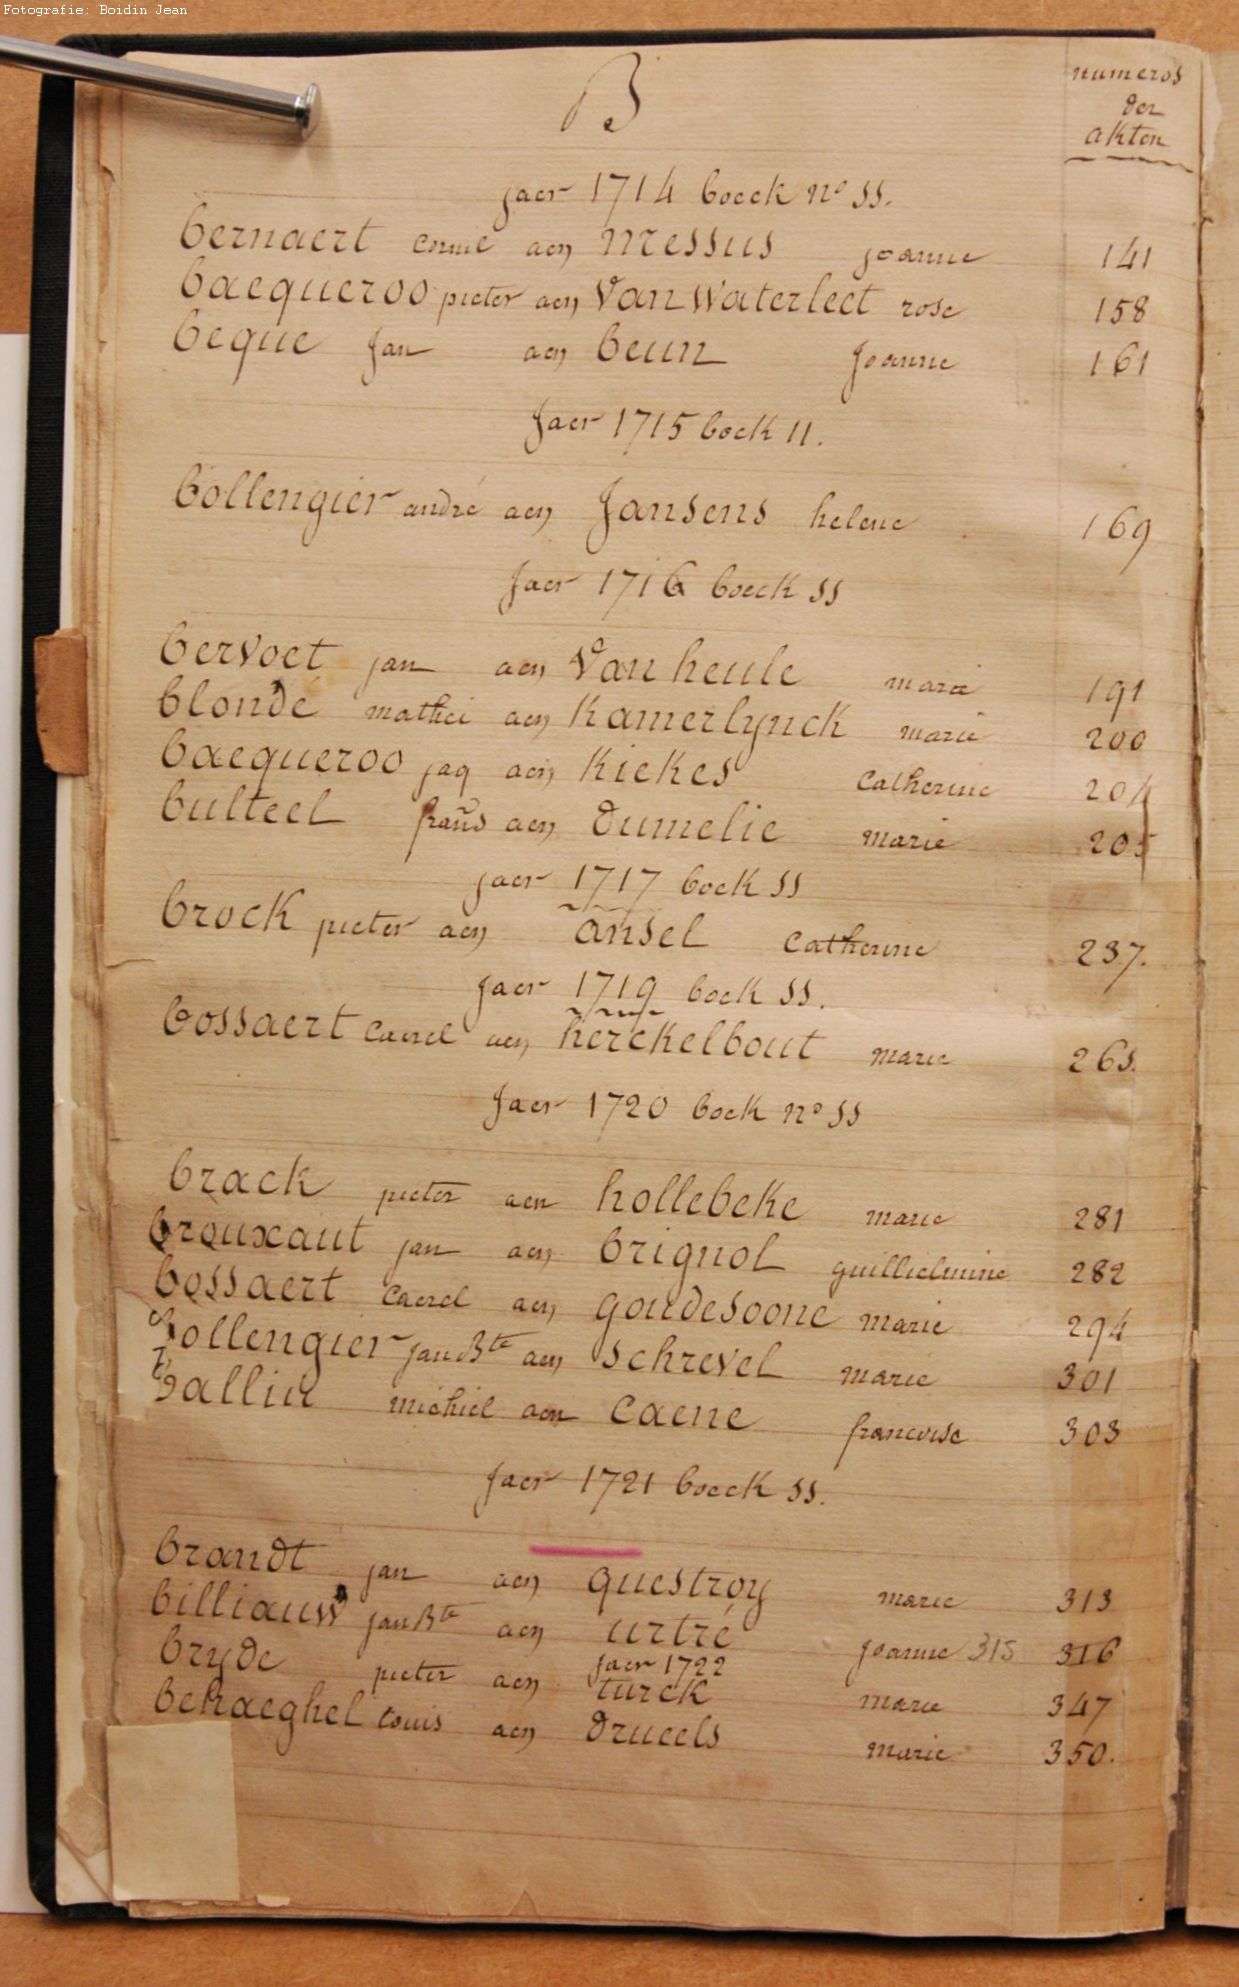 Fotografie: Boidin Jean
B
numeros
der
akten
jaer 1714 boeck no SS.
bernaert aen messus joanne 141
bacqueroo pieter aen Van Waterleet rose 158
beque Jan aen beun Joanne 161
Jaer 1715 boek 11.
bollengier andré aen Jansens helene 169
Jaer 1716 boeck SS
bervoet jan aen Van heule marie 191
blondé mathei aen Kamerlynck marie 200
bacqueroo jaq aen Kiekes Catherine 204
bulteel frans aen dumelie marie 205
jaer 1717 boek SS
brock pieter aen ansel Catherine 237.
Jaer 1719 boek SS.
bossaert Caerel aen herckelbout marie 265.
Jaer 1720 boek no SS
brack pieter aen hollebeke marie 281
brouxaut jan aen brignol guillielmine 282
bossaert Caerel aen goudesoone marie 294
bollengier jan Bte aen Schrevel marie 301
ballin michiel aen Caene francoise 303
Jaer 1721 boeck SS.
brandt jan aen questroy marie 313
billiauw jan Bte aen urtré joanne 315 316
Jaer 1722
bryde pieter aen turck marie 347
behaeghel Louis aen drueels marie 350.